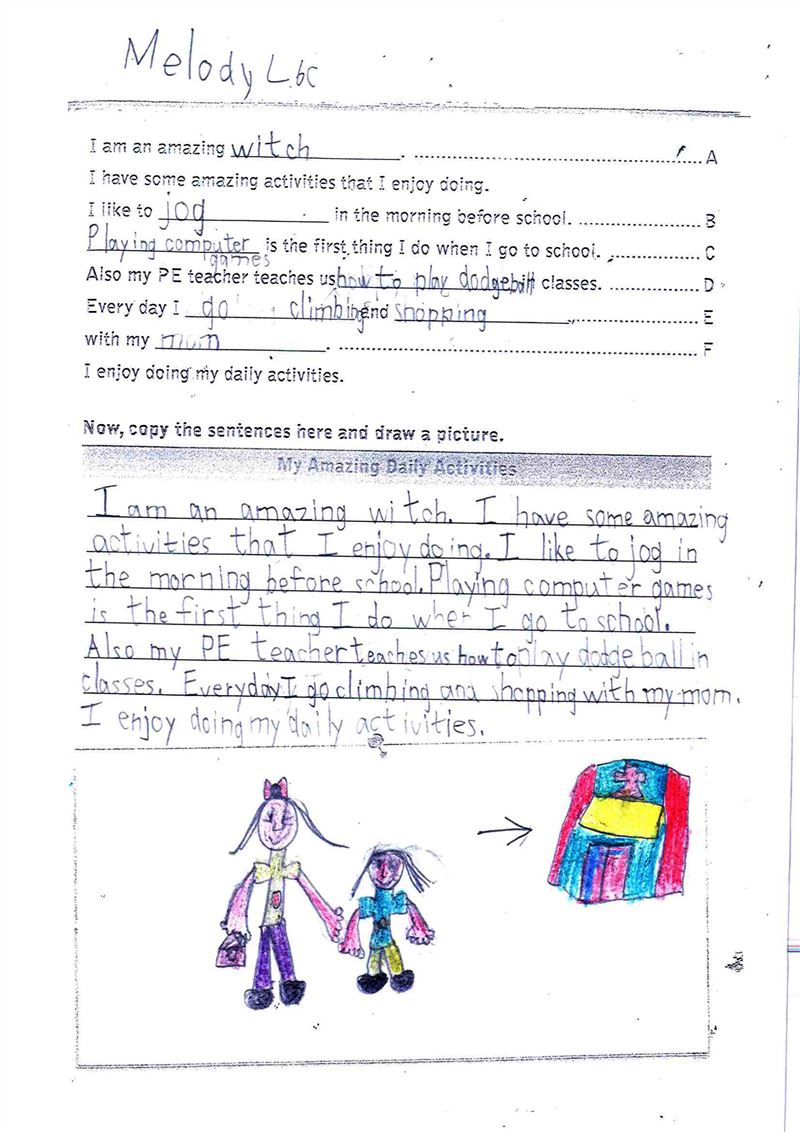 Melody L. 6C
I am an amazing witch. A
I have some amazing activities that I enjoy doing.
I like to jog in the morning before school. B
Playing computer games is the first thing I do when I go to school. C
Also my PE teacher teaches us how to play dodgeball classes. D
Every day I go climbing and shopping E
with my mum. F
I enjoy doing my daily activities.
Now, copy the sentences here and draw a picture.
My Amazing Daily Activities
I am an amazing witch. I have some amazing
activities that I enjoy doing. I like to jog in
the morning before school. Playing computer games
is the first thing I do when I go to school.
Also my PE teacher teaches us how to play dodgeball in
classes. Everyday I go climbing and shopping with my mom.
I enjoy doing my daily activities.